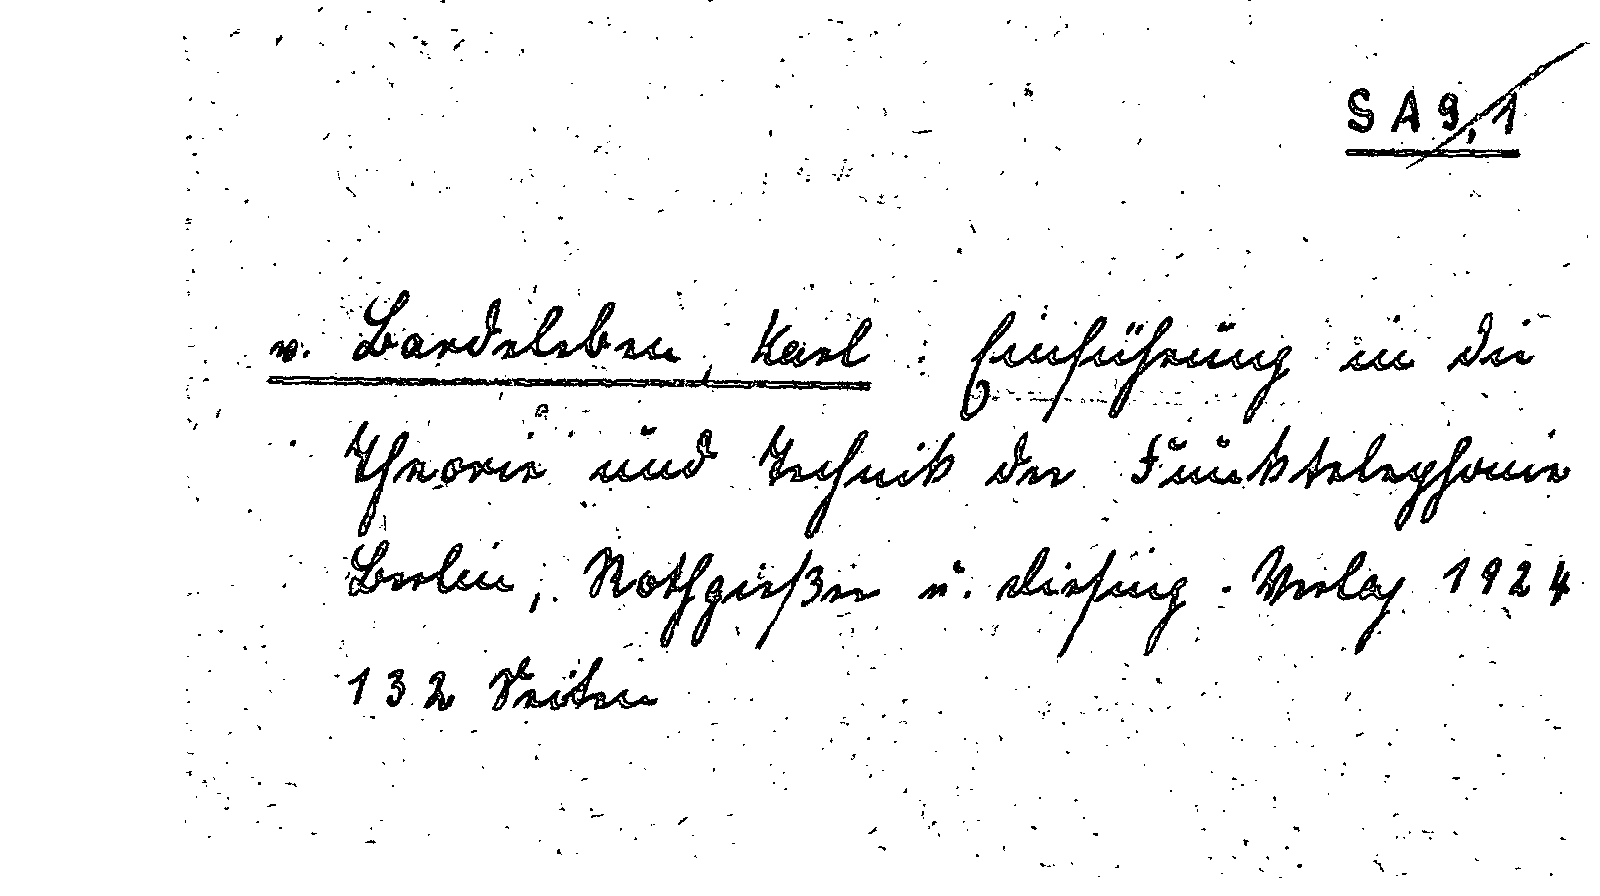 SA 9,1
v. Bardeleben, Karl : Einführung in die
Theorie und Technik der Funktelephonie
Berlin, Rothgießer u. Diesing - Verlag 1924
132 Seiten